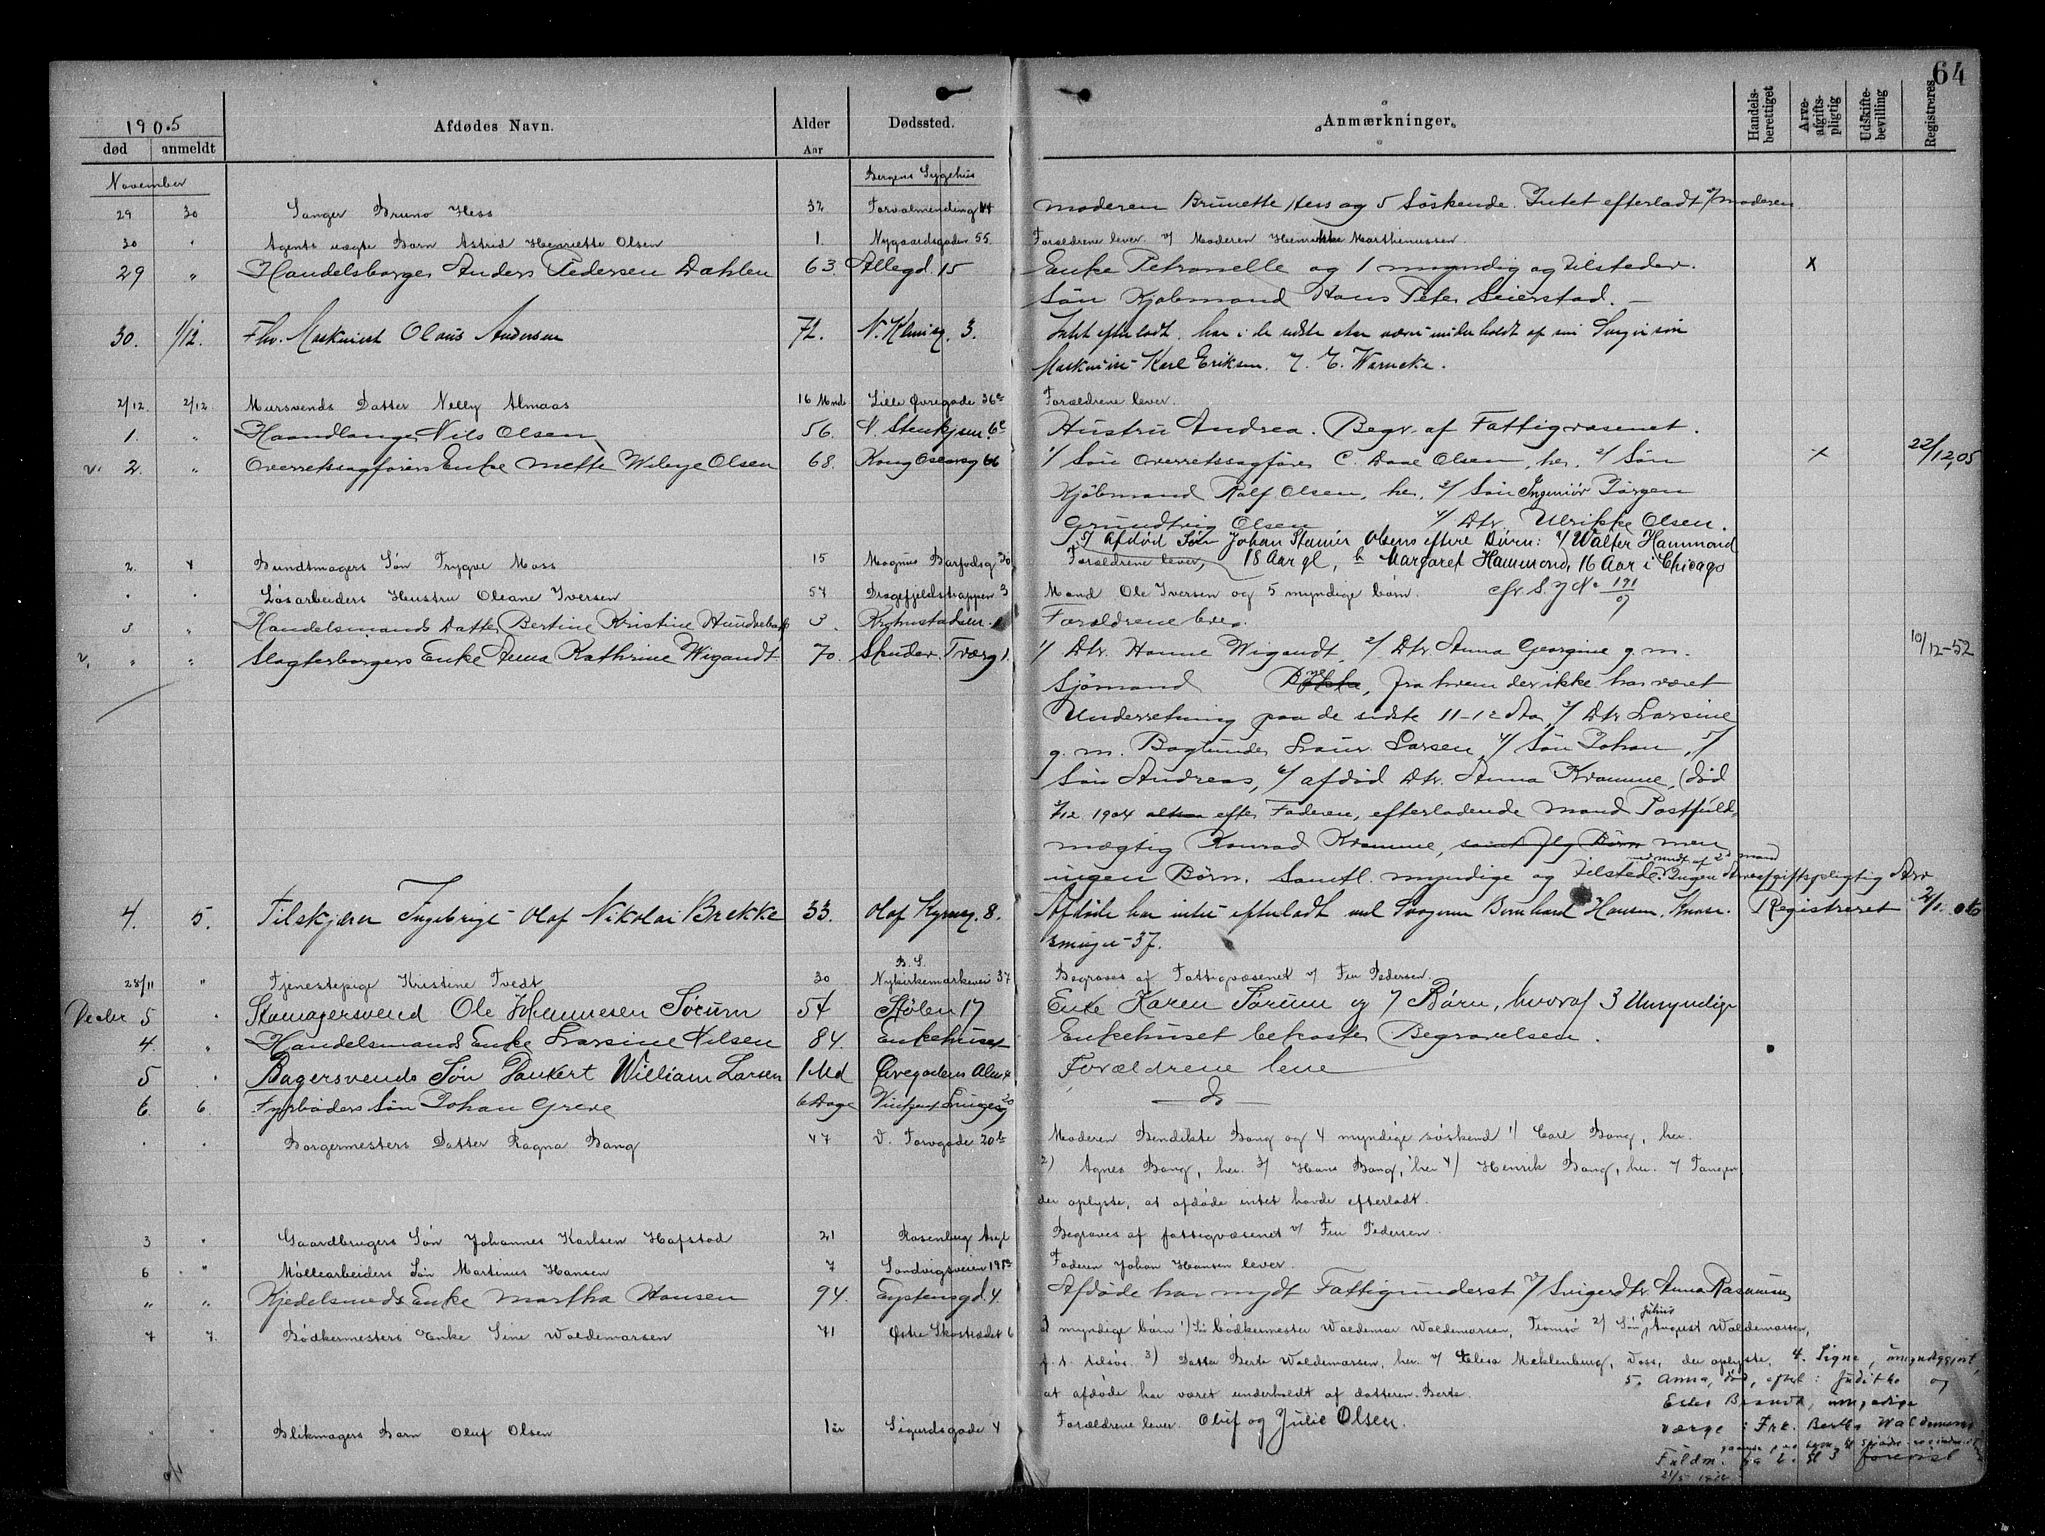 64
1905
død anmeldt Afdødes Navn. Alder Aar Dødssted. Anmærkninger. Handels-berettiget Arve-afgifts-pligtig Udskifte-bevilling Registreres
November Bergens Sygehus
29 30 Sanger Bruno Hess 32 Torvalmending 14 Moderen Brunette Hess og 5 Søskende. Intet efterladt v/ Moderen
30 " Agents uægte Barn Astrid Henriette Olsen 1. Nygaardsgaden 55 Forældrene lever. v/ Moderen Henrikke Marthinussen
29 " Handelsborger Anders Pedersen Dahlen 63. Allegd. 15 Enke Petronelle og 1 myndig og tilstedev. x
Søn Kjøbmand Hans Peter Seierstad. —
30. 1/12. Fhv. Maskinist Olaus Andersen 72. 3. Intet efterladt, har i de sidste aar været underholdt af sin Svigersøn
Maskinist Karl Eriksen. E. Warncke.
2/12. 2/12. Mursvends Datter Nelly Almaas 16 Mnd. Lille Øvregade 36 Forældrene lever.
1. " Haandlanger Nils Olsen 56. Hustru Andrea. Begr. af Fattigvæsenet.
v. 2. " Overretssagførers Enke Mette Wibye Olsen 68. Kong Oscarsg 66 1/ Søn Overretssagfører C. Daae Olsen, her. 2/ Søn x 22/12,05
Kjøbmand Rolf Olsen, her, 3/ Søn Ingeniør Jørgen
Grundtvig Olsen 4/ Dtr. Ulrikke Olsen.
5/ Afdød Søn Johan Olsens eftere Børn: 1/ Walter Hammond
2. 4 Bundtmagers Søn Trygve Moss 15 Magnus Barfodsg 30 Forældrene lever, 18 Aar gl, Margaret Hammond, 16 Aar i Chicago
" " Løsarbeiders Hustru Oleane Iversen 57 Dragefjeldstrappen 3 Mand Ole Iversen og 5 myndige børn. cfr. 191
3. " Handelsmands Datter Bertine Kristine 3. Forældrene lever.
v. " " Slagterborgers Enke Anna Kathrine Wigandt 70. Tværg 1. 1/ Dtr. Hanne Wigandt, 2/ Dtr. Anna Georgine g. m. 10/12-52
Sjømand , fra hvem der ikke har været
Underretning paa de sidste 11-12 Aar, 3/ Dtr Larsine
g. m. Laur. Larsen, 4/ Søn Johan, 5/
Søn Andreas, 6/ afdød Dtr. Anna Kramme, (død
1904 altsaa efter Faderen, efterladende mand Postfuld-
mægtig Konrad Kramme, men
ingen Børn. Samtl. myndige og tilstede. Ingen Arveafgiftspligtig Arv
4. 5. Tilskjærer Ingebrigt Olaf Nikolai Brekke 33. Olaf Kyrresg. 8. Afdøde har intet efterladt ved Svogeren Bernhard Hansen, Registreret 2/1.
smuget 37.
B. S.
28/11 " Tjenestepige Kristine Tvedt 30 Nykirkemarkevei 37 Begraves af Fattigvæsenet v/ Finn Pedersen.
Decbr 5 " Ole Johannesen Sørum 54 Stølen 17 Enke Karen Sørum og 7 Børn, hvoraf 3 Umyndige
4. " Handelsmands Enke Larsine Nilsen 84. Enkehuset Enkehuset bekoster Begravelsen.
5 " Bagersvends Søn William Larsen 1 Md Øvregadens Alm 4 Forældrene leve
6. 6. Fyrbøders Søn Johan Greve 6 Dage 20 — do —
" " Borgermesters Datter Ragna Bang 47 V. Torvgade 20 Moderen Bendikte Bang og 4 myndige søskend 1/ Carl Bang, her.
2) Agnes Bang, her. 3/ Hans Bang, her 4/ Henrik Bang, her. v/ Tangen
der oplyste, at afdøde intet havde efterladt.
3 " Gaardbrugers Søn Johannes Karlsen Hafstad 21 Rosenberg Asyl Begraves af fattigvæsenet v/ Finn Pedersen.
6 " Møllearbeiders Søn Martinus Hansen 7 Sandvigsveien Faderen Johan Hansen lever.
" " Kjedelsmeds Enke Martha Hansen 94. Eystensgd. 4. Afdøde har nydt Fattigunderst v/ Svigerdtr. Anna Rasmussen
7 7. Bødkermesters Enke Sine Waldemarsen 71 Østre Skostrædet 6 3 myndige børn 1) Søn bødkermester Waldemar Waldemarsen, Tromsø 2) Søn Julius August Waldemarsen,
p. t. tilsøs. 3) Datter Berte Waldemarsen, her. v/ Elisa Meklenburg, Voss, der oplyste, 4. Signe, umyndiggjort,
at afdøde har været underholdt af datteren Berte. 5. Anna, død, efterl: Judithe og
umyndige
" " Blikmagers Barn Oluf Olsen 1 år Sigurdsgade 4 Forældrene lever. Oluf og Julie Olsen. værge: Frk. Bertha Waldemarsen
Fuldm. forevist